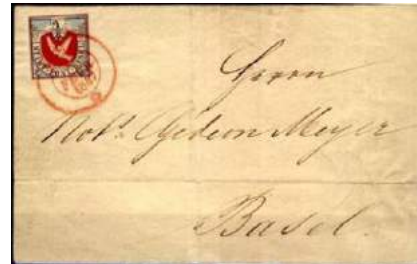 Herrn
Not. Gedeon Meyer
Basel.